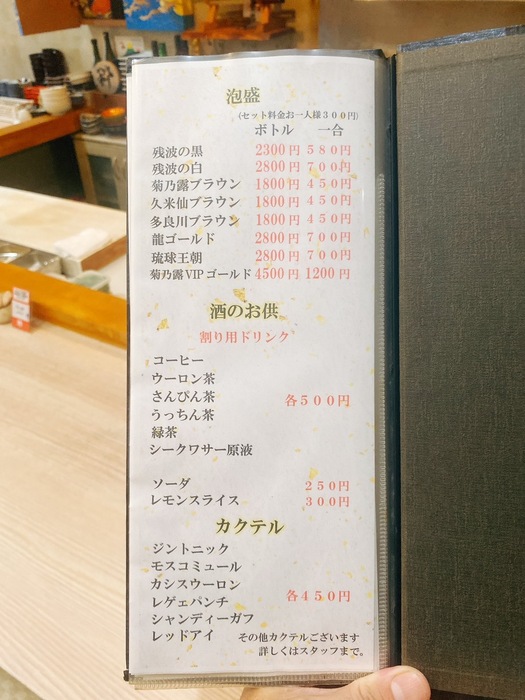 泡盛
(セット料金お一人様３００円)
ボトル 一合
残波の黒 2300円 ５８０円
残波の白 2800円 ７００円
菊乃露ブラウン 1800円 ４５０円
久米仙ブラウン 1800円 ４５０円
多良川ブラウン 1800円 ４５０円
龍ゴールド 2800円 ７００円
琉球王朝 2800円 ７００円
菊乃露VIPゴールド 4500円 1200円
酒のお供
割り用ドリンク
コーヒー
ウーロン茶
さんぴん茶 各５００円
うっちん茶
緑茶
シークワサー原液
ソーダ ２５０円
レモンスライス ３００円
カクテル
ジントニック
モスコミュール
カシスウーロン
レゲェパンチ 各４５０円
シャンディーガフ
レッドアイ その他カクテルございます
詳しくはスタッフまで。